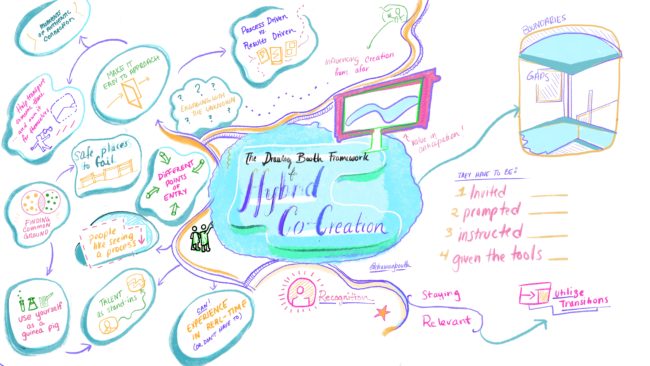 MOMENTS
OF AUTHENTIC
CONNECTION
MAKE IT
EASY TO APPROACH
PROCESS DRIVEN
VS
RESULTS DRIVEN
Influencing Creation
from afar
BOUNDARIES
GAPS
? ? ?
ENGAGING WITH
THE UNKNOWN
Help
someone
and own it
for themselves
Safe places
to fail
DIFFERENT
POINTS OF
ENTRY
value in
anticipation!
The Drawing Booth Framework
of
Hybrid
Co-Creation
THEY HAVE TO BE:
1 Invited
2 prompted
3 instructed
4 given the tools
FINDING
COMMON
GROUND
people
like seeing
a process
use yourself
as a
guinea pig
TALENT
as stand-ins
CAN!
EXPERIENCE
IN REAL-TIME
(OR DON'T HAVE TO)
Recognition
Staying
Relevant
utilize
Transitions